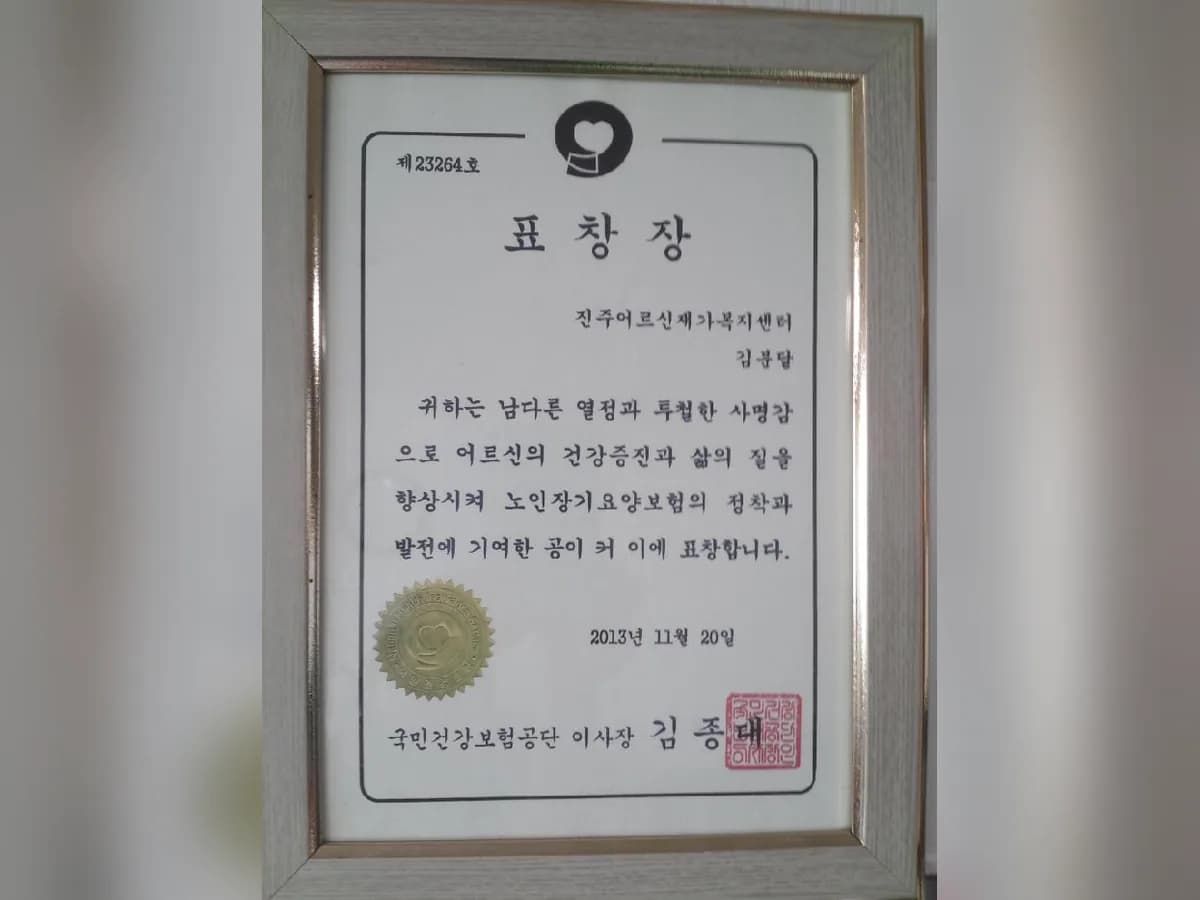 제23264호
표 창 장
진주어르신재가복지센터
김분달
귀하는 남다른 열정과 투철한 사명감
으로 어르신의 건강증진과 삶의 질을
향상시켜 노인장기요양보험의 정착과
발전에 기여한 공이 커 이에 표창합니다.
2013년 11월 20일
국민건강보험공단 이사장 김종대